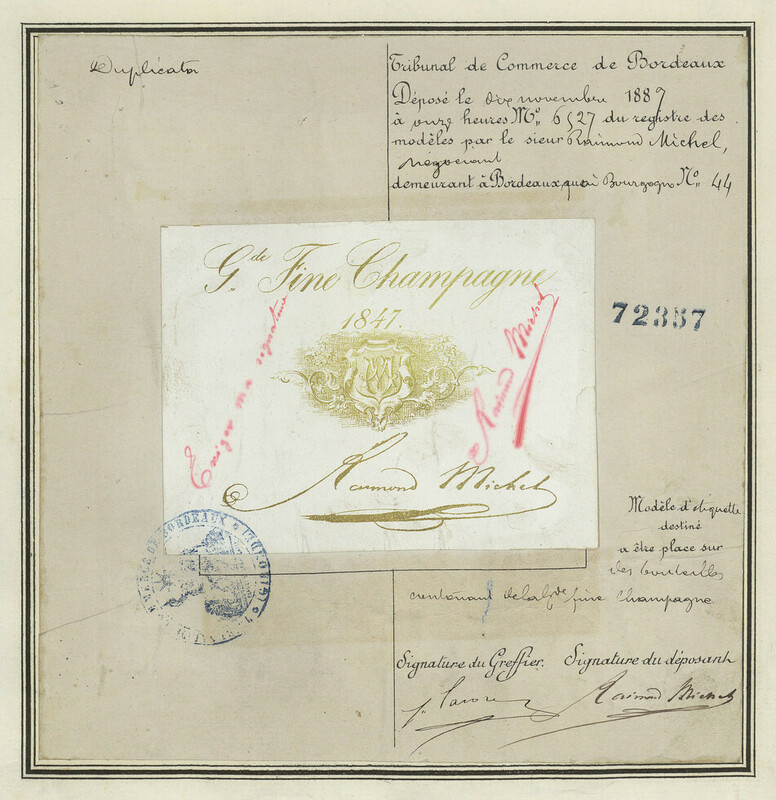 Duplicata
Tribunal de Commerce de Bordeaux
Déposé le dix novembre 1889
à onze heures Nº 6527 du registre des
modèles par le sieur Raimond Michel,
négociant
demeurant à Bordeaux, quai Bourgogne Nº 44
Gde Fine Champagne
1847.
Exiger ma signature
Raimond Michel
Raimond Michel
72357
Modèle d'étiquette
destiné
a être place sur
des bouteilles
contenant de la Gde fine Champagne
Signature du Greffier. Signature du déposant
Raimond Michel